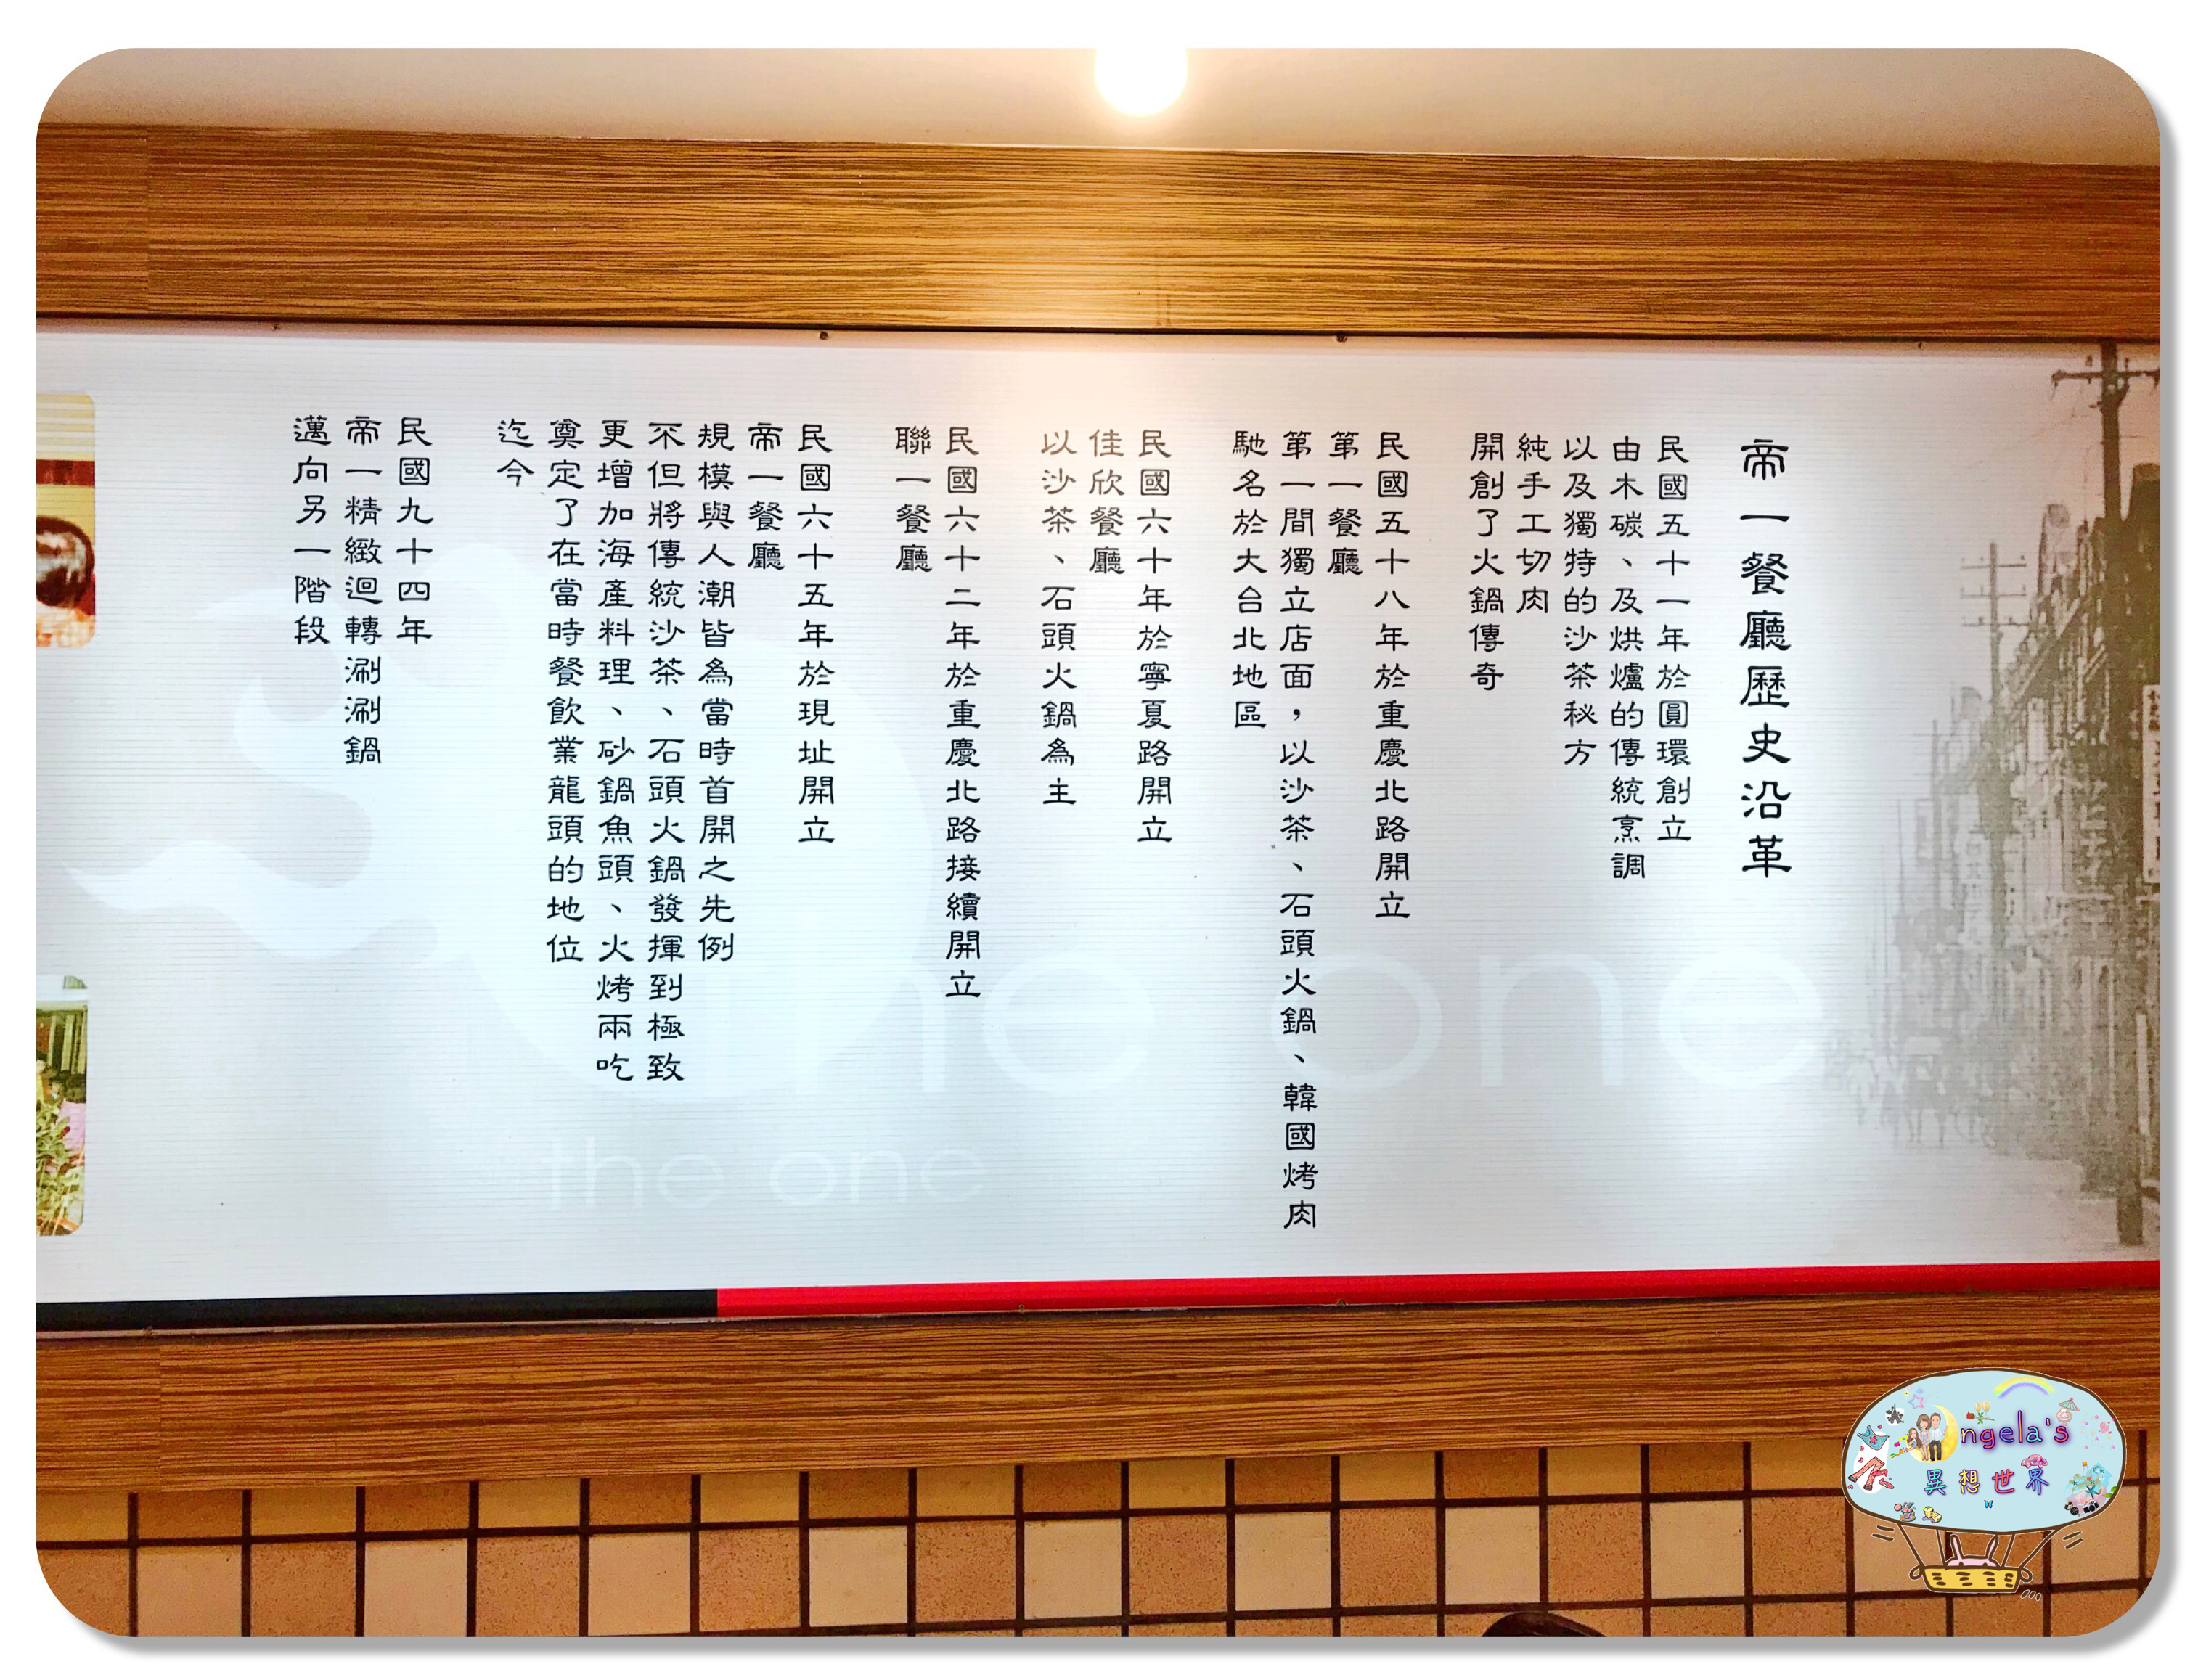 帝一餐廳歷史沿革
民國五十一年於圓環創立
由木碳、及烘爐的傳統烹調
以及獨特的沙茶秘方
純手工切肉
開創了火鍋傳奇
民國五十八年於重慶北路開立
第一餐廳
第一間獨立店面，以沙茶、石頭火鍋、韓國烤肉
馳名於大台北地區
民國六十年於寧夏路開立
佳欣餐廳
以沙茶、石頭火鍋為主
民國六十二年於重慶北路接續開立
聯一餐廳
民國六十五年於現址開立
帝一餐廳
規模與人潮皆為當時首開之先例
不但將傳統沙茶、石頭火鍋發揮到極致
更增加海產料理、砂鍋魚頭、火烤兩吃
奠定了在當時餐飲業龍頭的地位
迄今
民國九十四年
帝一精緻迴轉涮涮鍋
邁向另一階段
the one
the one
ngela's
異想世界